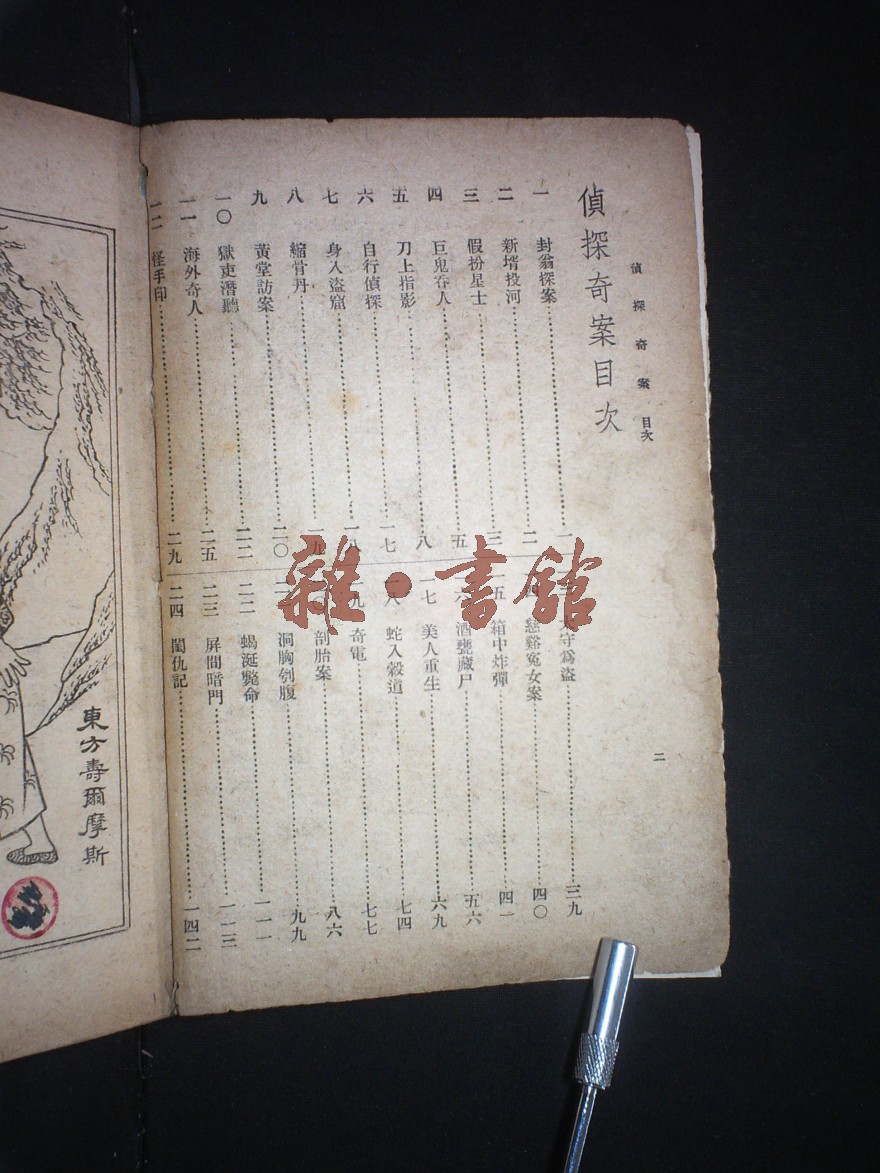 偵探奇案 目次
二
偵探奇案目次
一 封翁探案 一
二 新壻投河 二
三 假扮星士 三
四 巨鬼吞人 五
五 刀上指影 八
六 自行偵探 一七
七 身入盜窟 一八
八 縮骨丹 一九
九 黃堂訪案 二〇
一〇 獄吏潛聽 二二
一一 海外奇人 二五
一二 怪手印 二九
守爲盜 三九
慈谿冤女案 四〇
一五 箱中炸彈 四一
一六 酒甕藏尸 五六
一七 美人重生 六九
一八 蛇入穀道 七四
一九 奇電 七七
剖胎案 八六
洞胸刳腹 九九
二二 蝎涎斃命 一一一
二三 屏間暗門 一一三
二四 閨仇記 一四二
東方壽爾摩斯
雜·書館